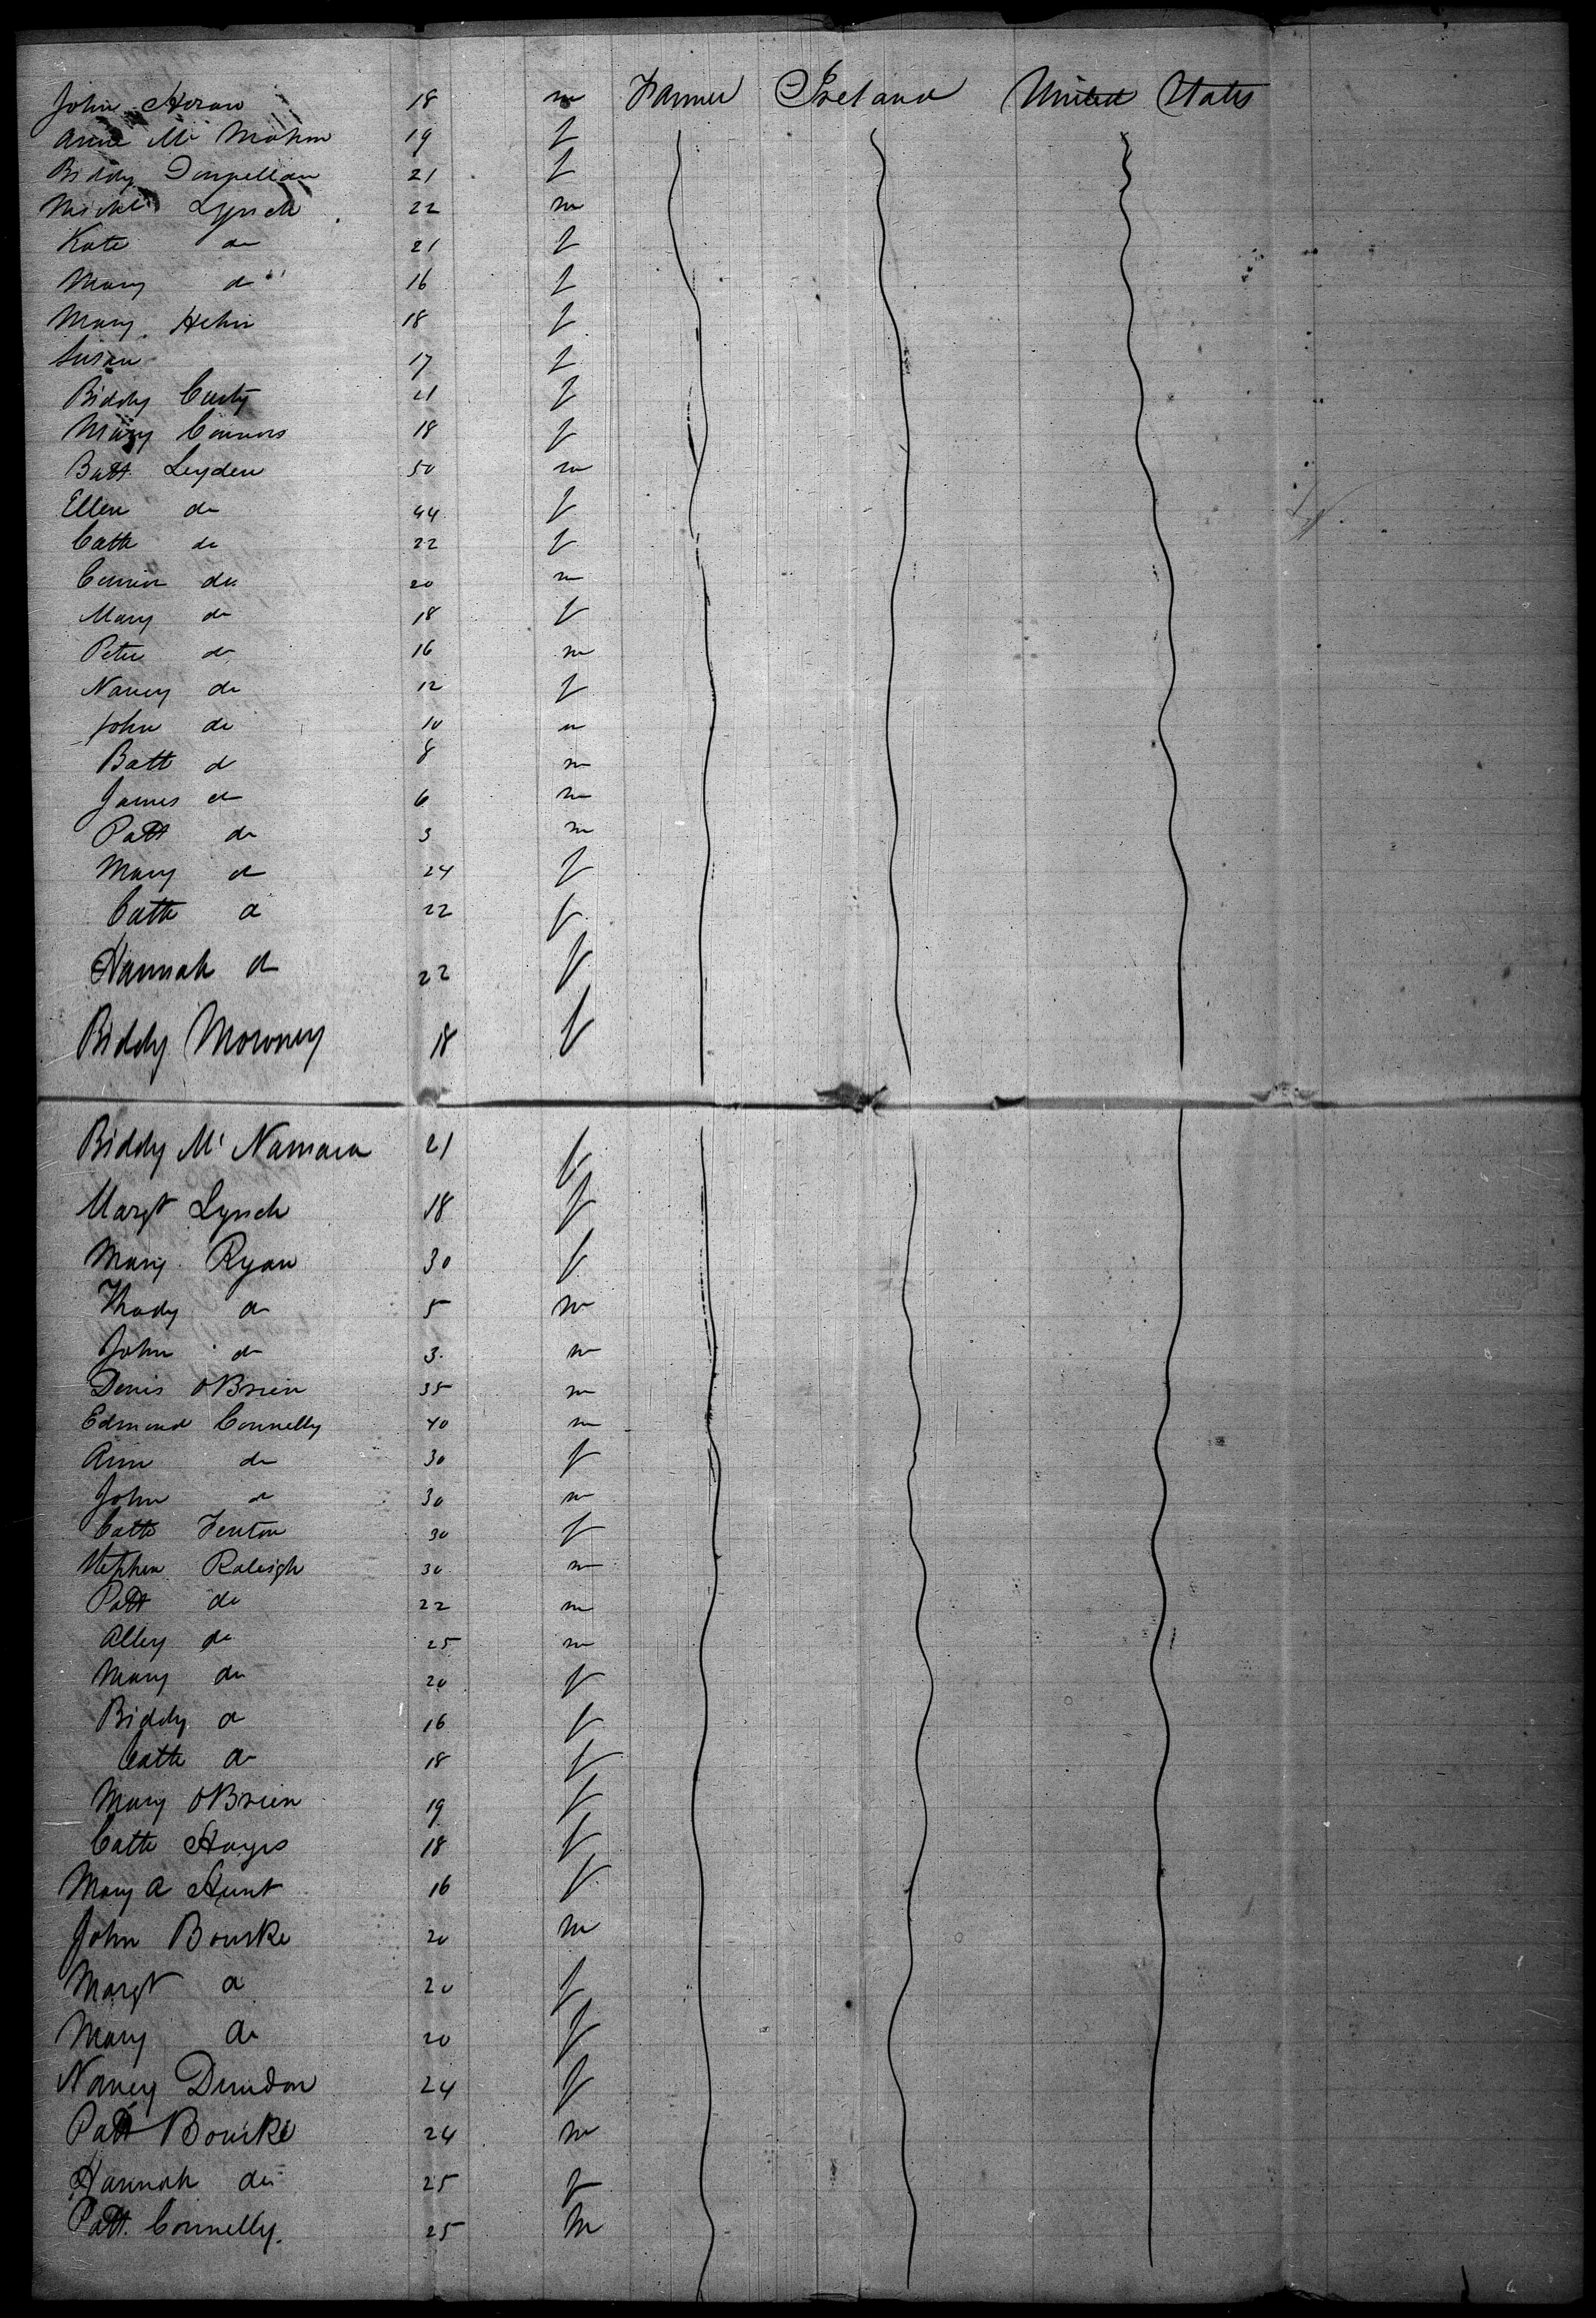 John Horan 18 m Farmer Ireland United States
Anne Mc Mahon 19 f
Biddy Donnellan 21 f
Michl Lynch 22 m
Kate do 21 f
Mary do 16 f
Mary Hehir 18 f
Susan 17 f
Biddy Custy 21 f
Mary Connors 18 f
Batt Leyden 50 m
Ellen do 44 f
Cath do 22 f
do 20 m
Mary do 18 f
Peter do 16 m
Nancy do 12 f
John do 10 m
Batt do 8 m
James do 6 m
Patt do 3 m
Mary do 24 f
Cath do 22 f
Hannah do 22 f
Biddy Moroney 18 f
Biddy Mc Namara 21 f
Margt Lynch 18 f
Mary Ryan 30 f
Thady do 5 m
John do 3 m
Denis OBrien 35 m
Edmond Connelly 40 m
Ann do 30 f
John do 30 m
Cath Fenton 30 f
Stephen Raleigh 30 m
Patt do 22 m
Alley do 25 m
Mary do 20 f
Biddy do 16 f
Cath do 18 f
Mary OBrien 19 f
Cath Hayes 18 f
Mary A Hunt 16 f
John Bourke 20 m
Margt do 20 f
Mary do 20 f
Nancy Dundon 24 f
Patt Bourke 24 m
Hannah do 25 f
Patt. Connelly. 25 m